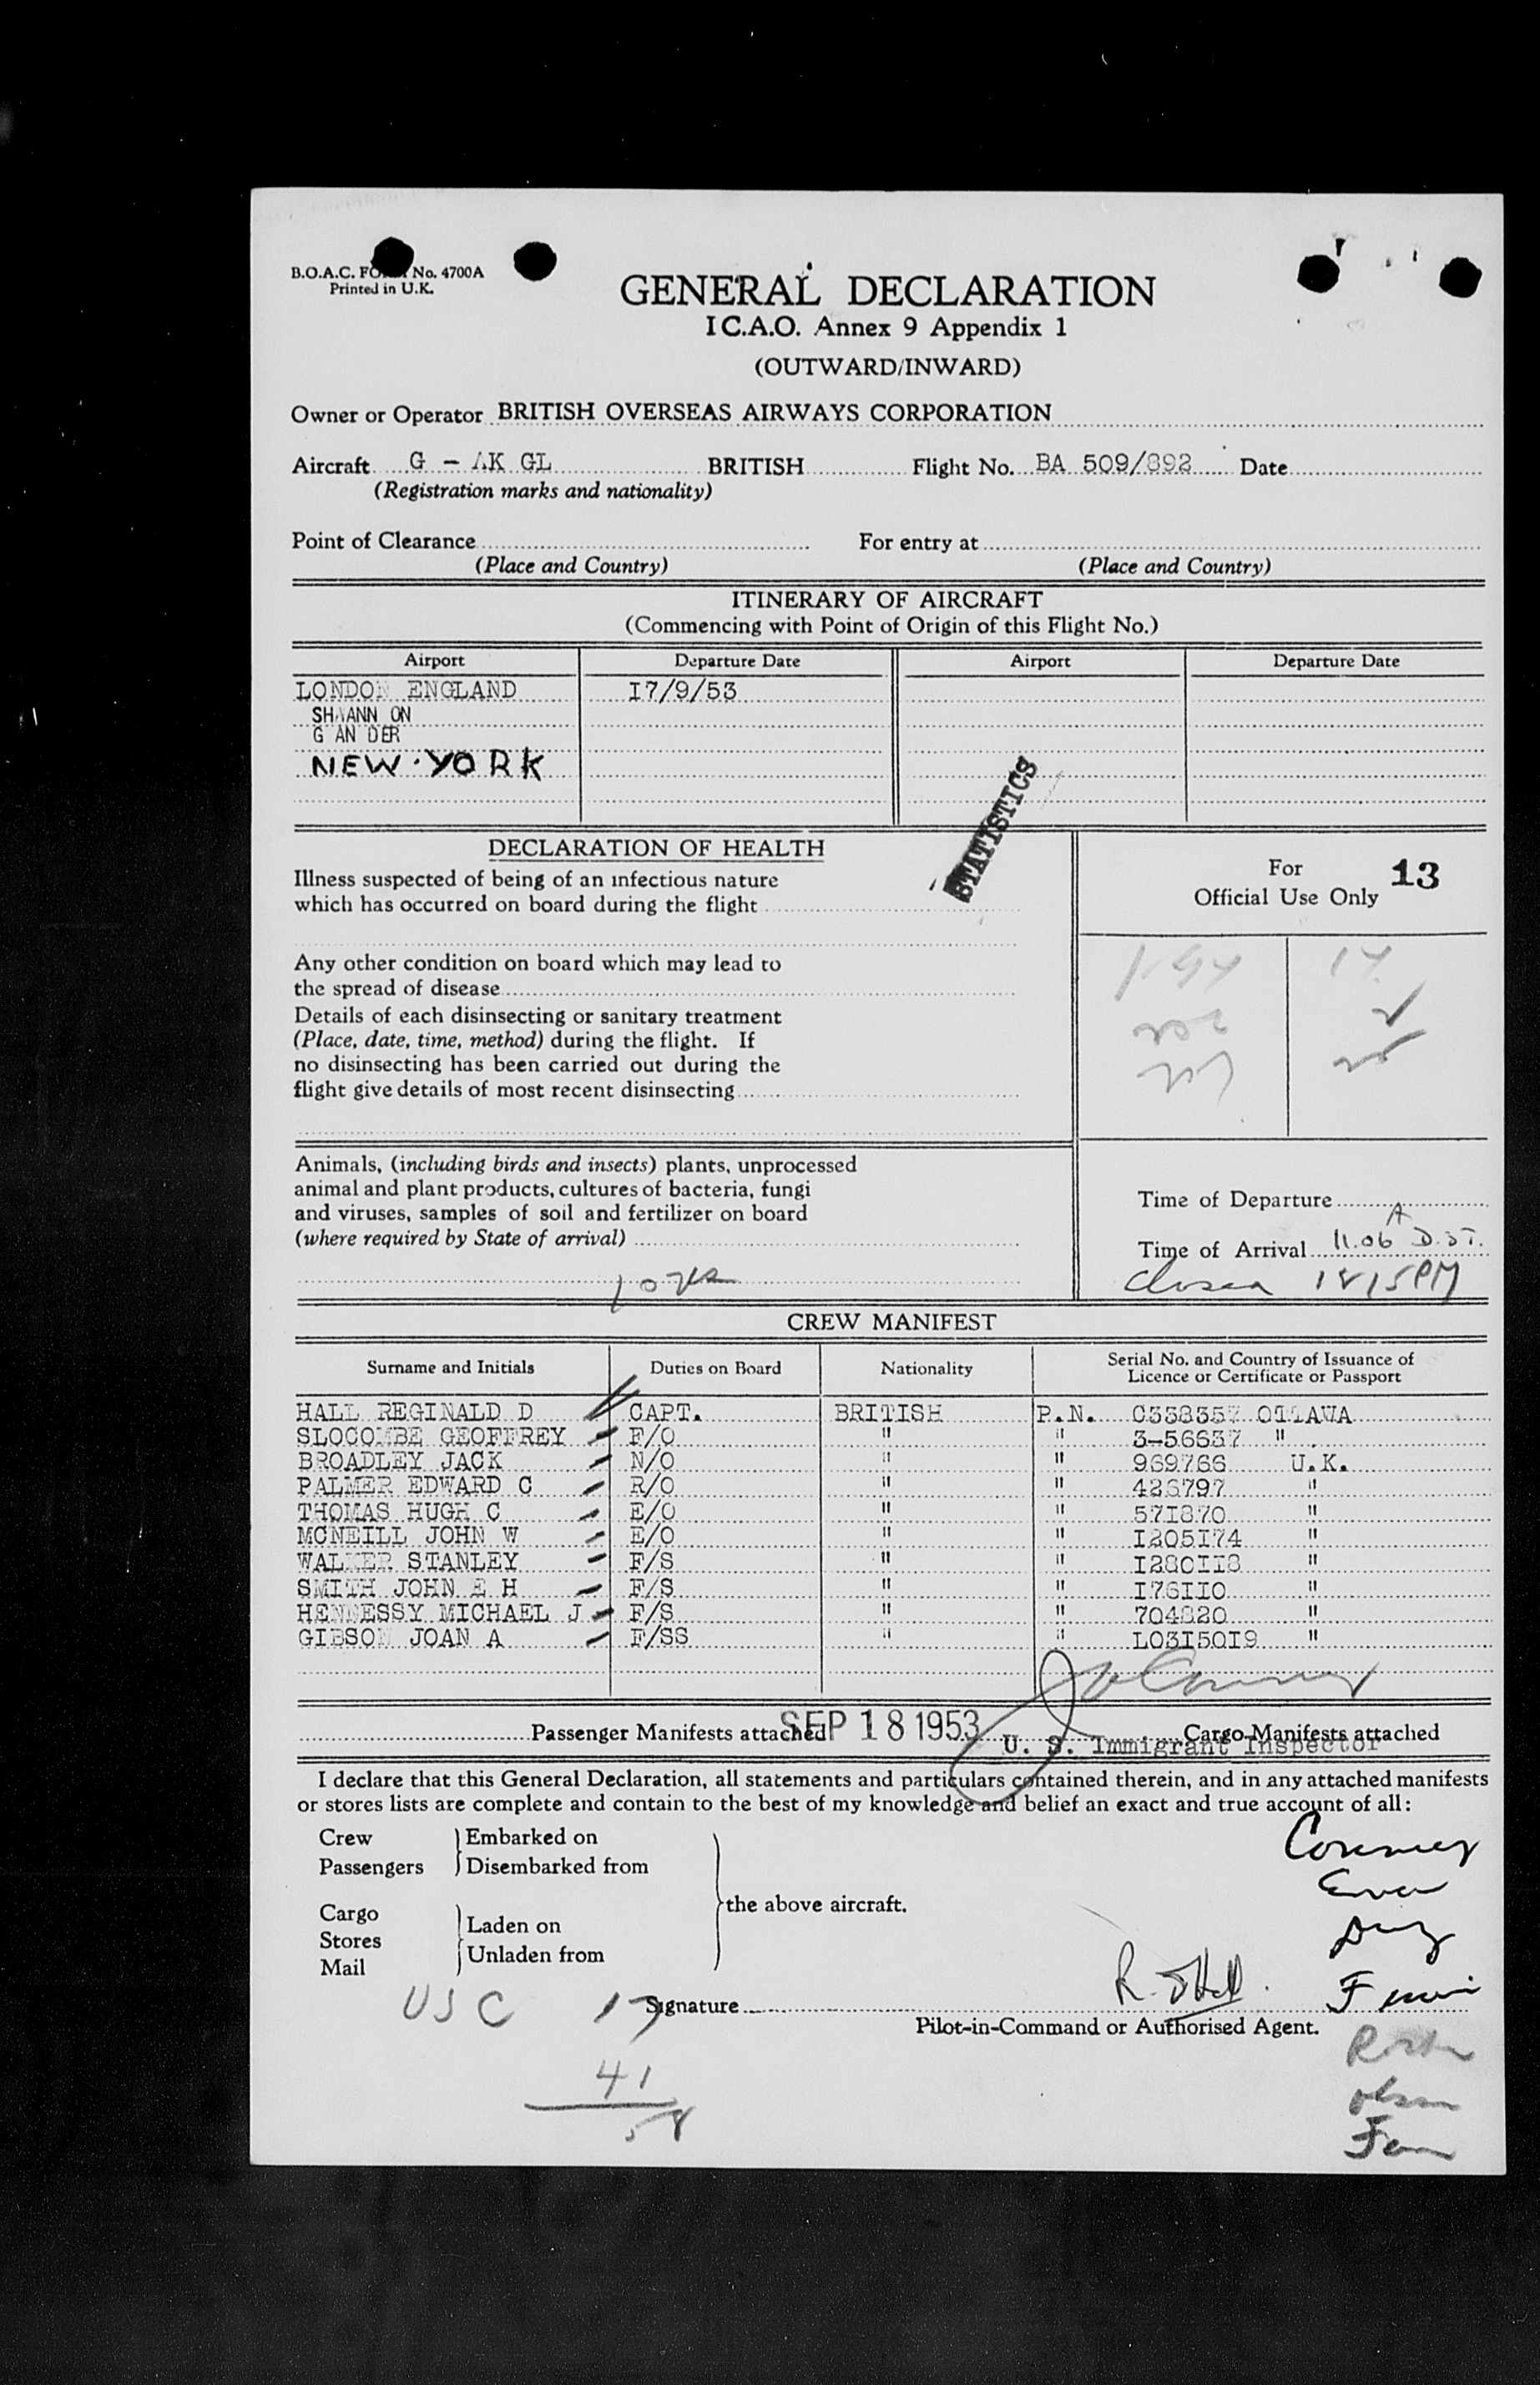 B.O.A.C. FORM No. 4700A
Printed in U.K.
GENERAL DECLARATION
I C.A.O. Annex 9 Appendix 1
(OUTWARD/INWARD)
Owner or Operator BRITISH OVERSEAS AIRWAYS CORPORATION
Aircraft G - AK GL BRITISH Flight No. BA 509/892 Date
(Registration marks and nationality)
Point of Clearance For entry at
(Place and Country) (Place and Country)
ITINERARY OF AIRCRAFT
(Commencing with Point of Origin of this Flight No.)
Airport Departure Date Airport Departure Date
LONDON ENGLAND I7/9/53
SHAANN ON
G AN DER
NEW YORK
STATISTICS
DECLARATION OF HEALTH
Illness suspected of being of an infectious nature
which has occurred on board during the flight
For
Official Use Only 13
Any other condition on board which may lead to
the spread of disease
Details of each disinsecting or sanitary treatment
(Place, date, time, method) during the flight. If
no disinsecting has been carried out during the
flight give details of most recent disinsecting
Animals, (including birds and insects) plants, unprocessed
animal and plant products, cultures of bacteria, fungi
and viruses, samples of soil and fertilizer on board
(where required by State of arrival)
Time of Departure
Time of Arrival 11.06 A D.S.T.
Closed 1215PM
CREW MANIFEST
Surname and Initials Duties on Board Nationality Serial No. and Country of Issuance of
Licence or Certificate or Passport
HALL REGINALD D CAPT. BRITISH P.N. C338357 OTTAWA
SLOCOMBE GEOFFREY F/O " " 3-56637 "
BROADLEY JACK N/O " " 969766 U.K.
PALMER EDWARD C R/O " " 423797 "
THOMAS HUGH C E/O " " 57I870 "
MCNEILL JOHN W E/O " " I205I74 "
WALKER STANLEY F/S " " I280II8 "
SMITH JOHN E H F/S " " I76II0 "
HENNESSY MICHAEL J F/S " " 704820 "
GIBSON JOAN A F/SS " " L03I50I9 "
Passenger Manifests attached SEP 18 1953 Cargo Manifests attached
U. S. Immigrant Inspector
I declare that this General Declaration, all statements and particulars contained therein, and in any attached manifests
or stores lists are complete and contain to the best of my knowledge and belief an exact and true account of all:
Crew Embarked on
Passengers Disembarked from
the above aircraft.
Cargo Laden on
Stores
Mail Unladen from
USC 17
Signature
Pilot-in-Command or Authorised Agent.
41
58